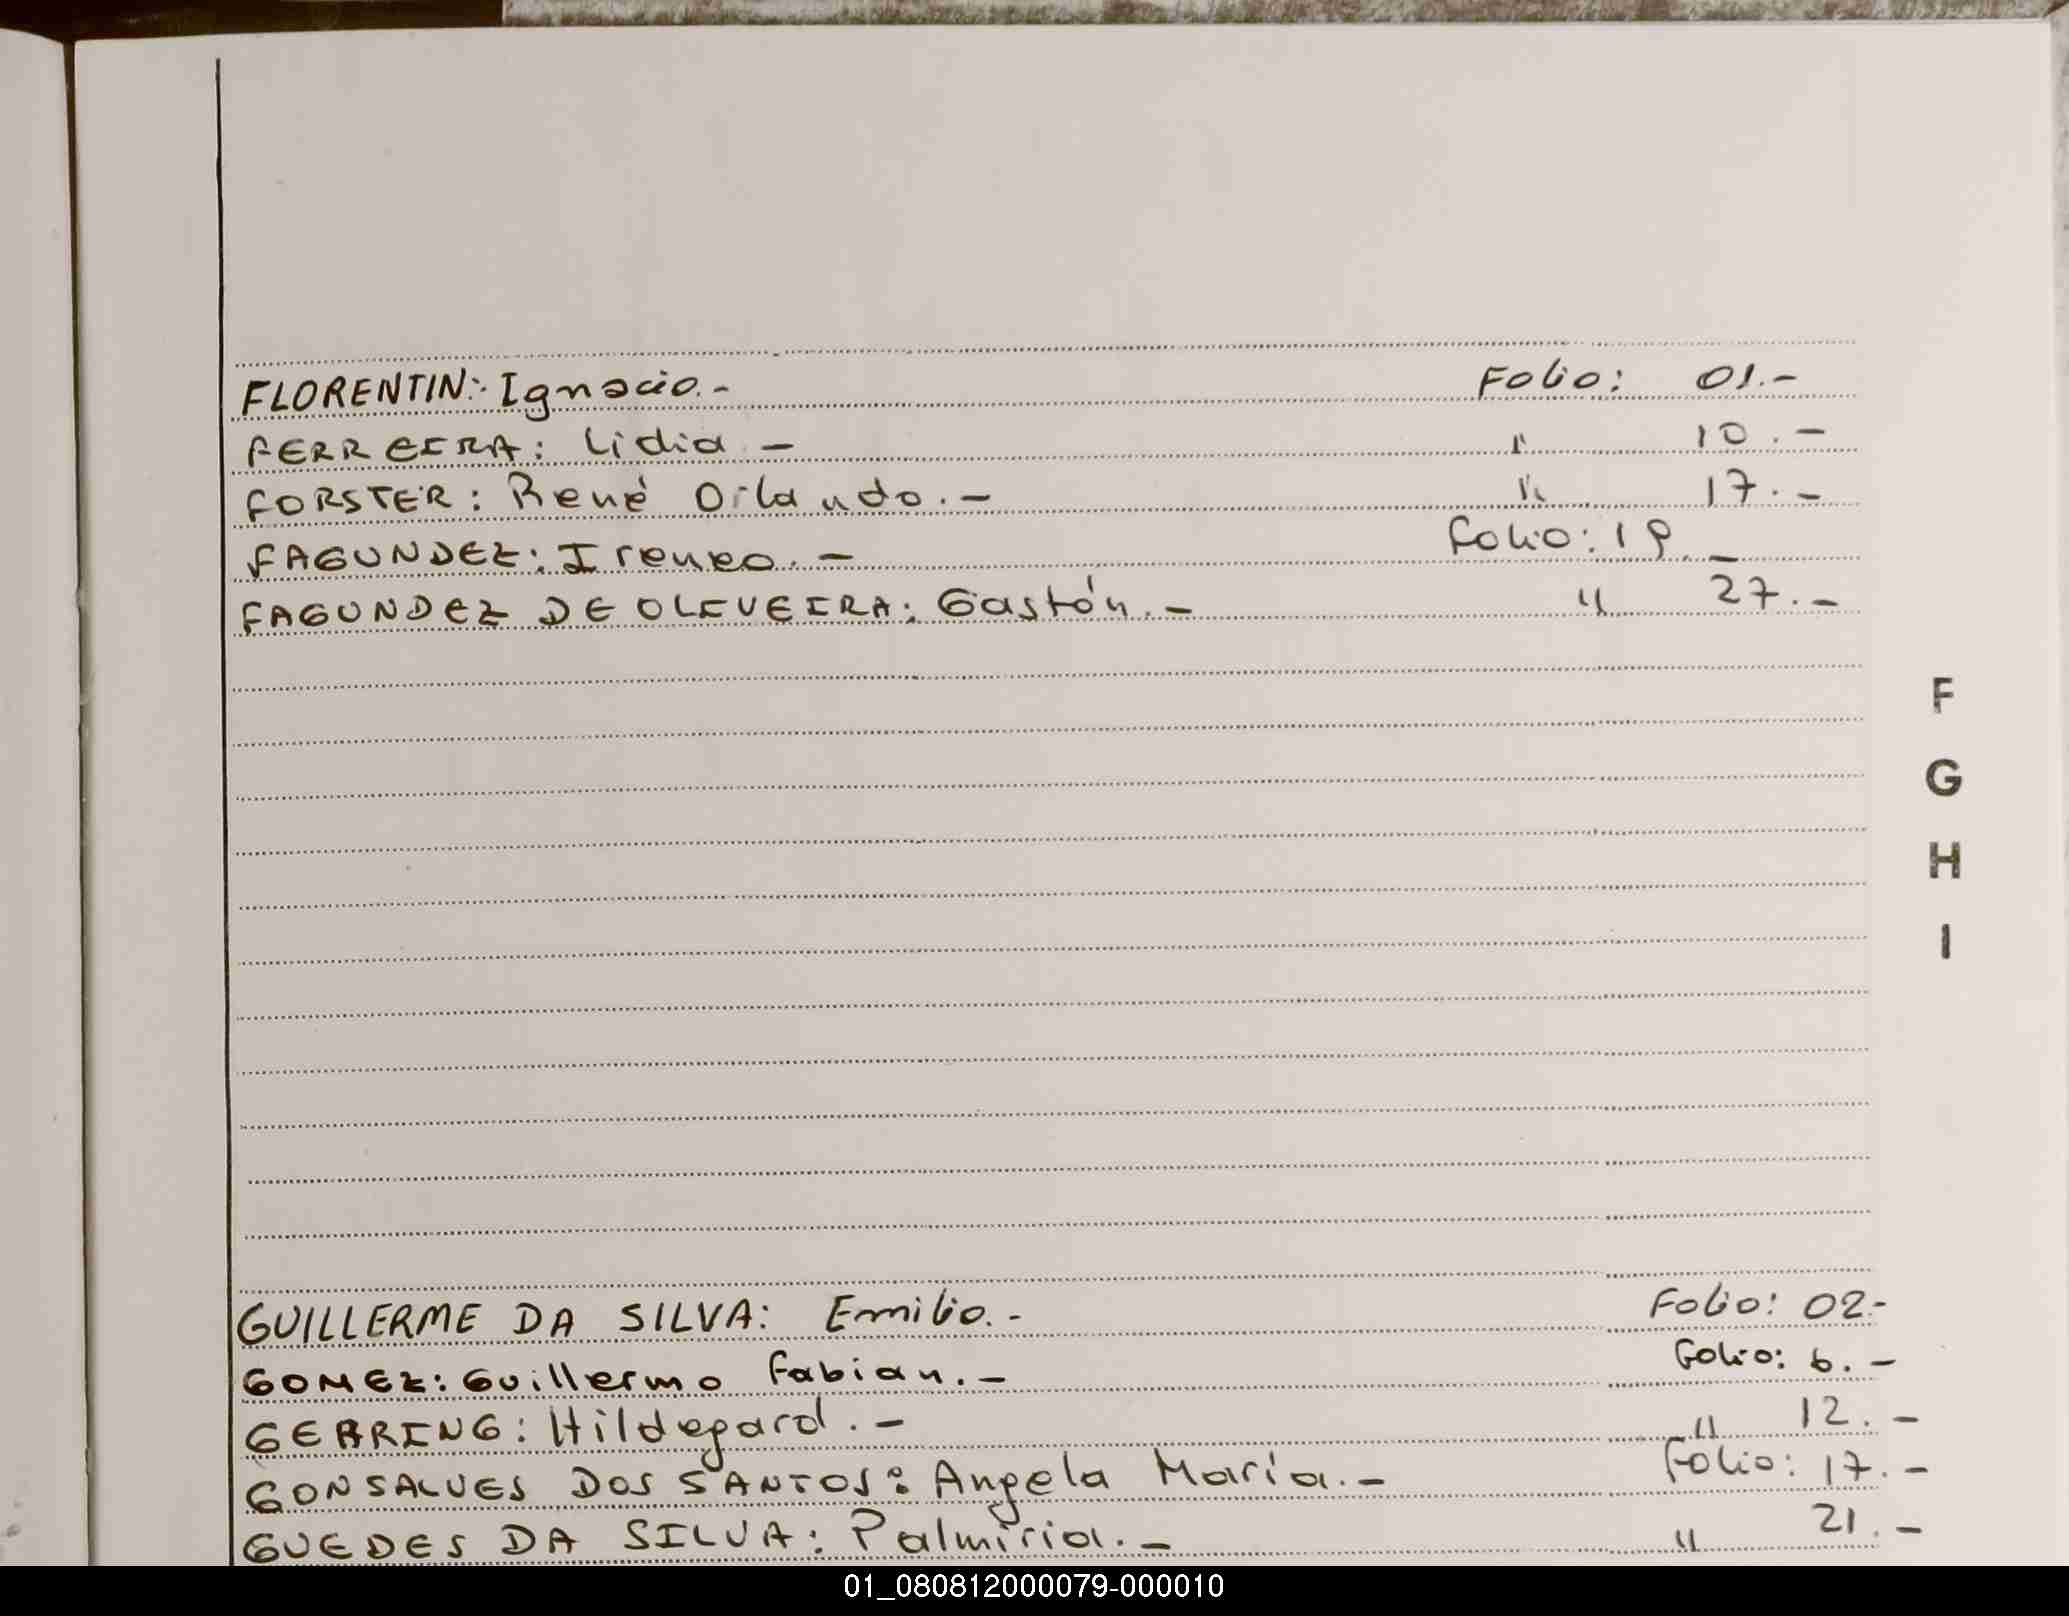 FLORENTIN: Ignacio.- Folio: 01.-
FERREIRA: Lidia - " 10.-
FORSTER: René Orlando.- " 17.-
FAGUNDEZ: Ireneo.- Folio: 19.-
FAGUNDEZ DE OLIVEIRA: Gastón.- " 27.-
F
G
H
I
GUILLERME DA SILVA: Emilio.- Folio: 02.-
GOMEZ: Guillermo Fabian.- Folio: 6.-
GERRING: Hildegard.- " 12.-
GONSALVES DOS SANTOS: Angela María.- Folio: 17.-
GUEDES DA SILVA: Palmiria.- " 21.-
01_080812000079-000010